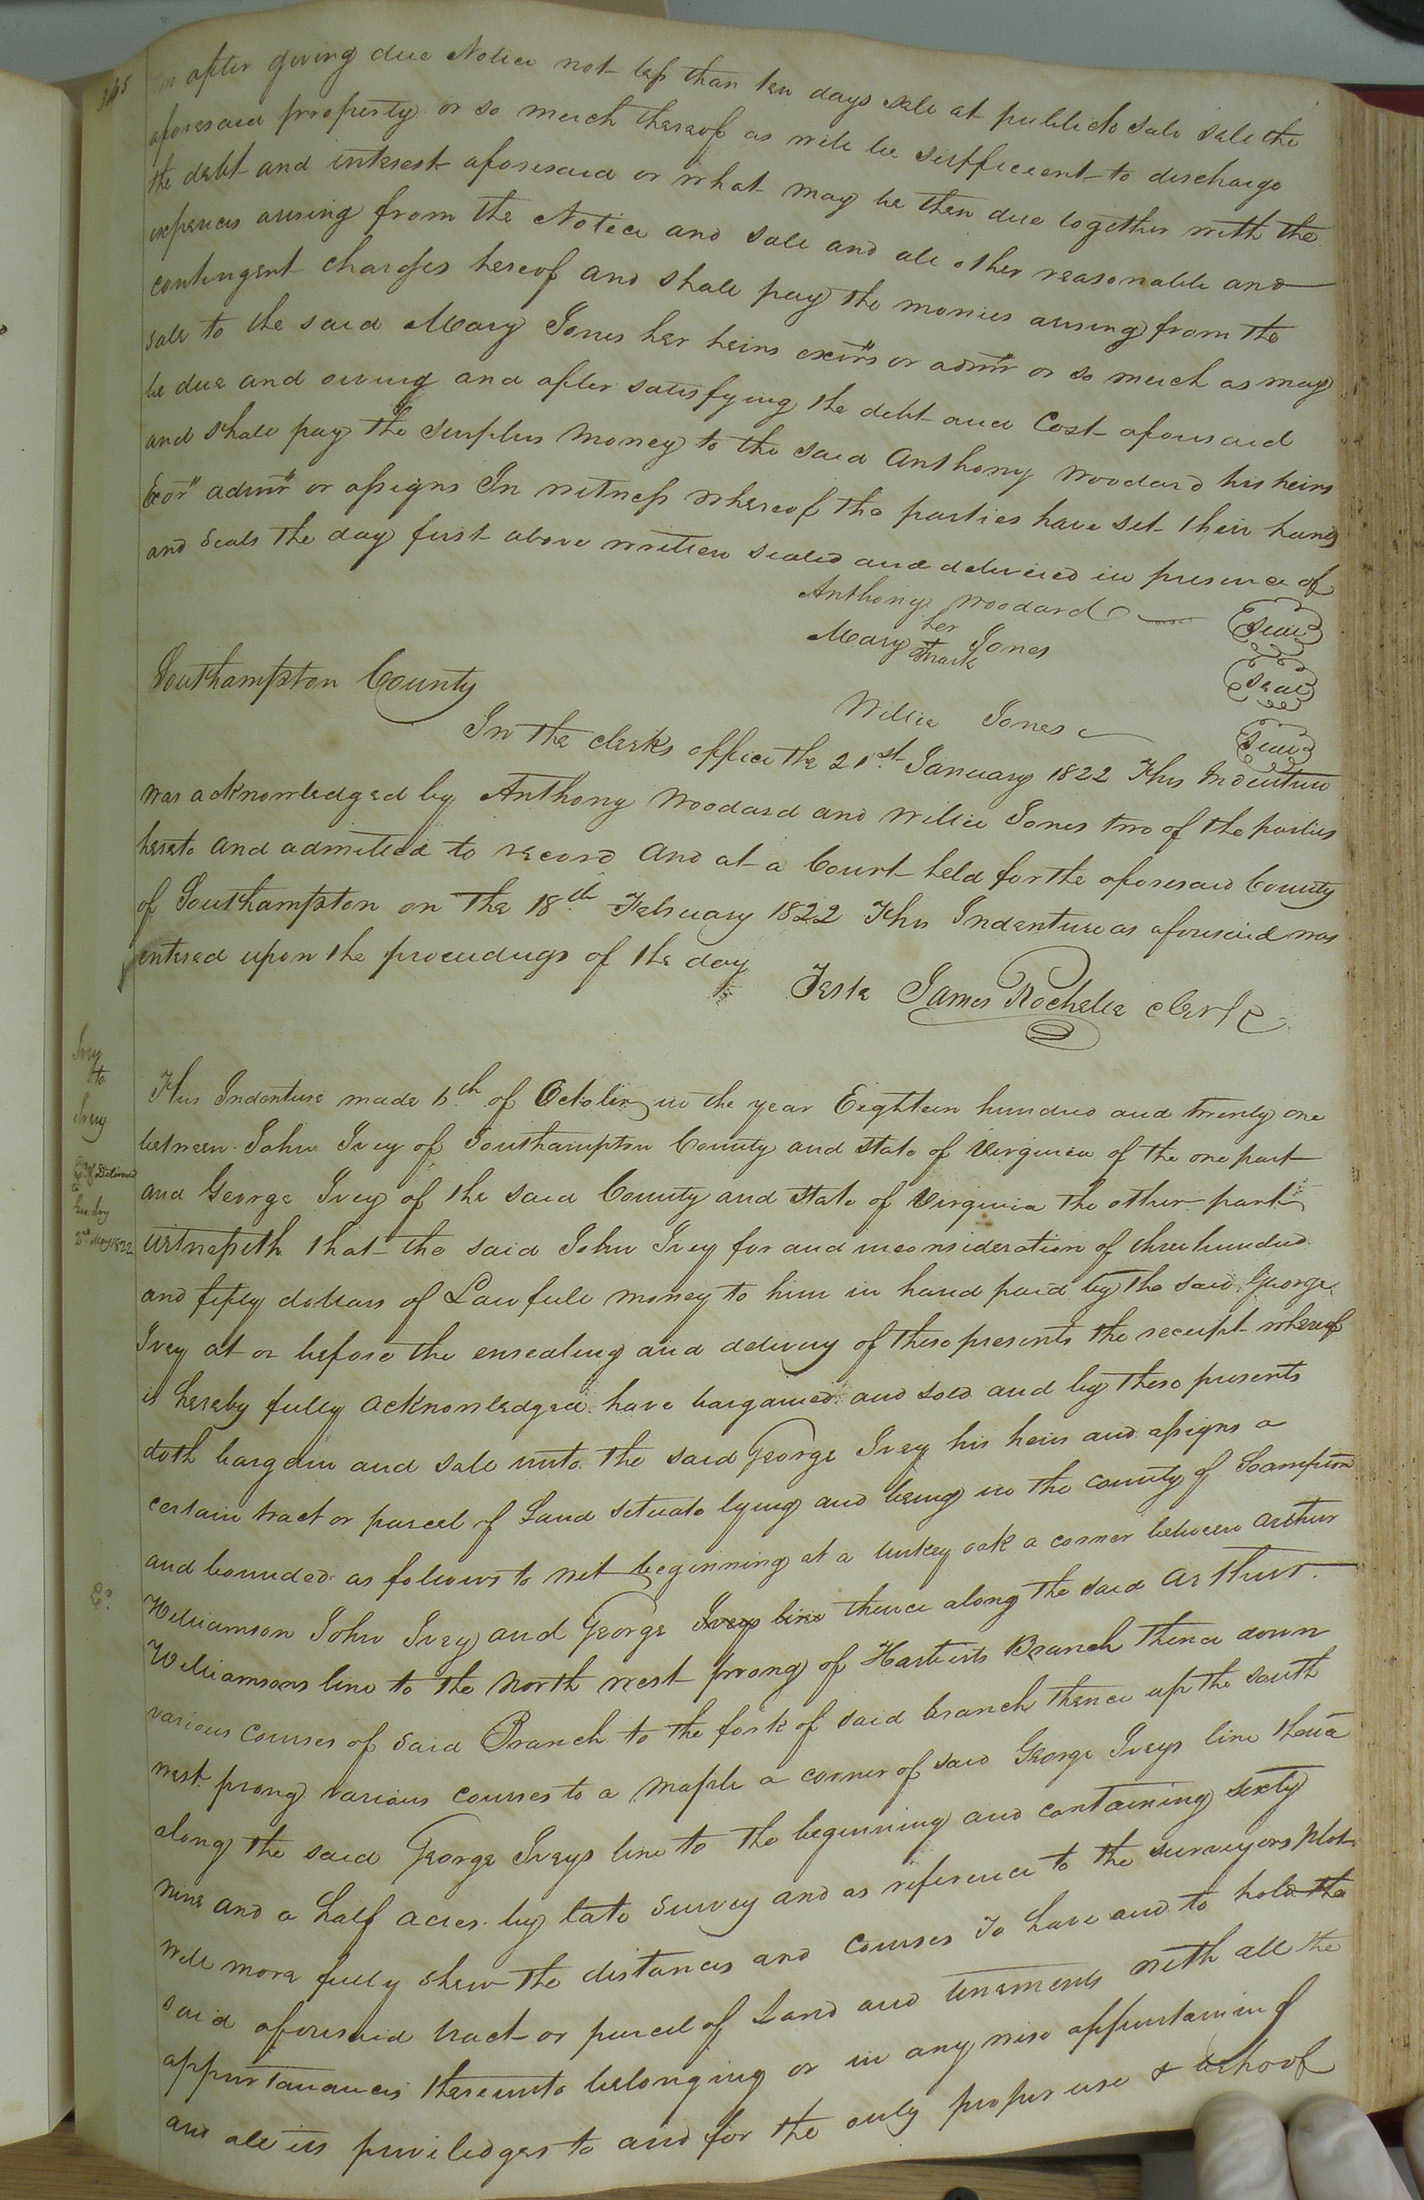 345
after giving due Notice not less than ten days sale at publick sale sale the
aforesaid property or so much thereof as will be sufficient to discharge
the debt and interest aforesaid or what may be then due together with the
expences arising from the Notice and sale and all other reasonable and
contingent charges hereof and shall pay the monies arising from the
sale to the said Mary Jones her heirs exors or admr or so much as may
be due and owing and after satisfying the debt and Cost aforesaid
and shall pay the surplus money to the said Anthony Woodard his heirs
Exors admrs or assigns In witness whereof the parties have set their hands
and seals the day first above written sealed and delivered in presence of
Anthony Woodard Seal
her
Mary + Jones Seal
mark
Willie Jones Seal
Southampton County
In the clerks office the 21st January 1822 This Indenture
was acknowledged by Anthony Woodard and Willie Jones two of the parties
hereto and admitted to record and at a Court held for the aforesaid County
of Southampton on the 18th February 1822 This Indenture as aforesaid was
entered upon the proceedings of the day
Teste James Rochelle clerk
Ivey
to
Ivey
Delivered
to
Geo. Ivey
1822
Ed
This Indenture made 6th of October in the year Eighteen hundred and twenty one
between John Ivey of Southampton County and State of Virginia of the one part
and George Ivey of the said County and State of Virginia the other part
witnesseth that the said John Ivey for and in consideration of three hundred
and fifty dollars of Lawfull money to him in hand paid by the said George
Ivey at or before the ensealing and delivery of these presents the receipt whereof
is hereby fully acknowledged have bargained and sold and by these presents
doth bargain and sale unto the said George Ivey his heirs and assigns a
certain tract or parcel of Land situate lying and being in the county of Sampton
and bounded as follows to wit beginning at a turkey oak a corner between Arthur
Williamson John Ivey and George Iveys line thence along the said Arthur
Williamsons line to the North west prong of Branch thence down
various courses of said Branch to the fork of said branch thence up the south
west prong various courses to a maple a corner of said George Iveys line thence
along the said George Iveys line to the beginning and containing sixty
nine and a half acres by late survey and as reference to the surveyors plot
will more fully shew the distances and courses To have and to hold the
said aforesaid tract or parcel of Land and tenaments with all the
appurtanances thereunto belonging or in any wise appurtaining
and all its priviledges to and for the only proper use & behoof